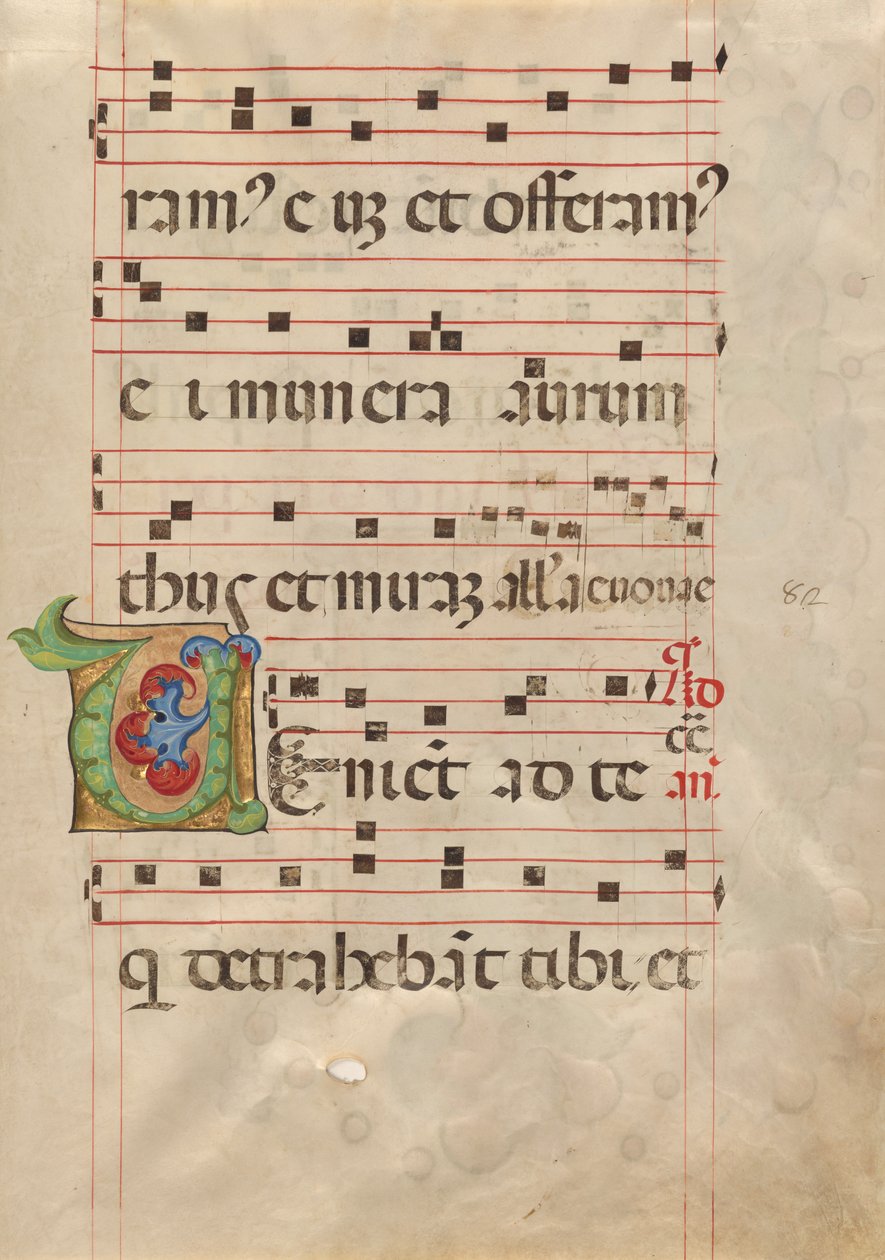 ram⁹ euꝫ et offeram⁹
ei munera aurum
thus et mirāꝫ all'a euouae
82
Ad
UEniēt ad te
cc̄
an̄
q̄ detrahebāt tibi, et